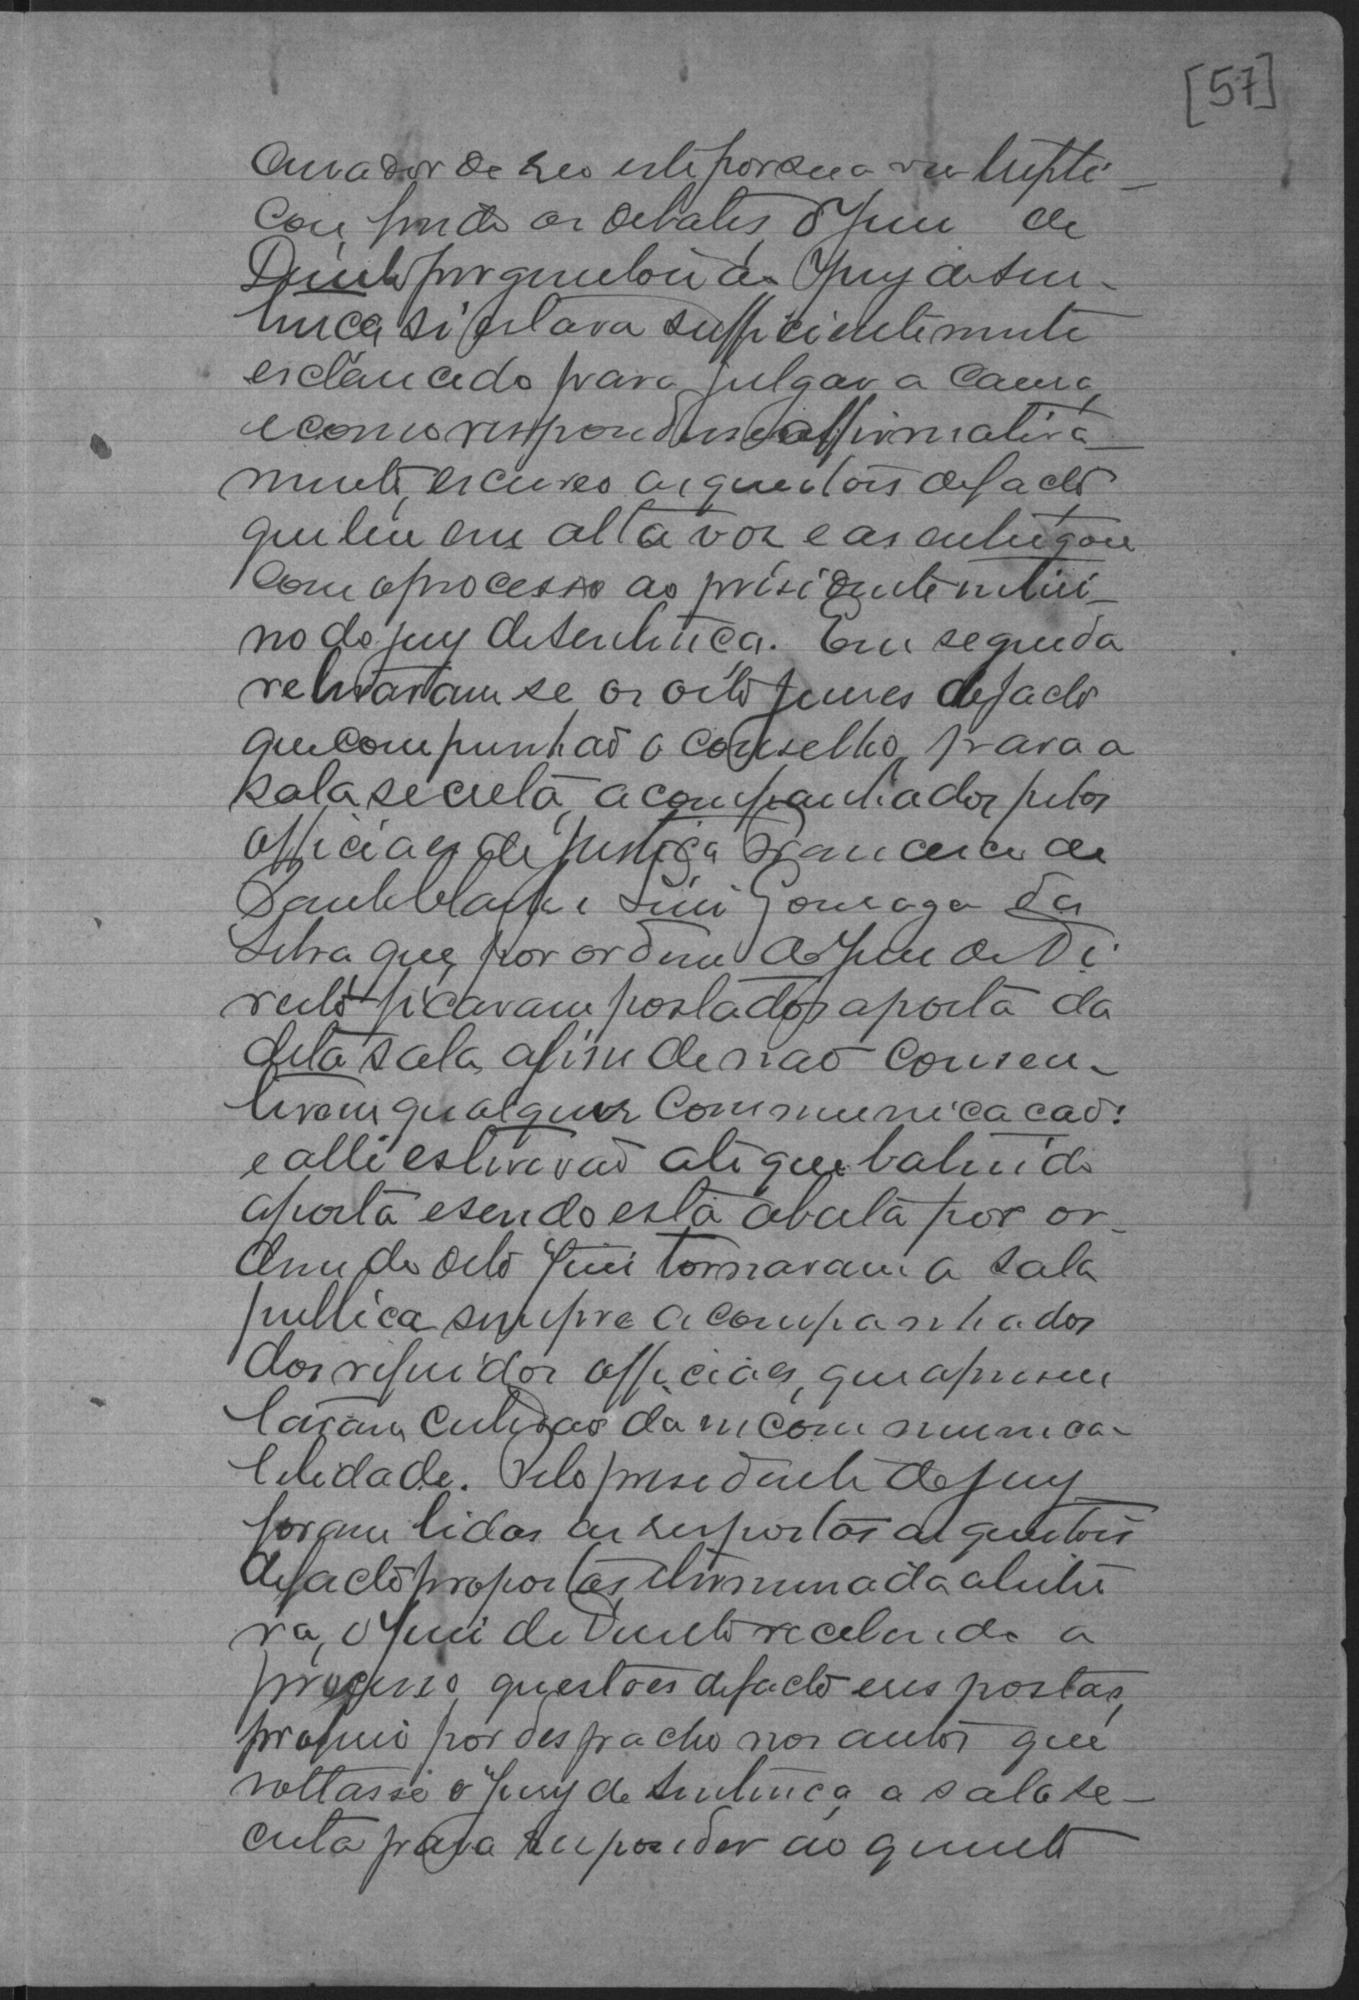 [57]
Curador do reo este por sua vez trepli-
cou, findo os debates, o Juiz de
Direito perguntou ao Jury de sen-
tença si estava sufficientemente
esclarecido para julgar a causa,
e como respondesse affirmativa-
mente, escreveo as questões de facto
que leu em alta voz e as entregou
com o processo ao presidente interi-
no do jury de sentença. Em seguida
retiraram se os oito juizes de facto
que compunhão o conselho, para a
sala secreta, acompanhados pelos
officiaes de justiça Francisco de
e Luiz Gonzaga da
Silva que, por ordem do Juiz de Di-
reito ficavam postados a porta da
dita sala, afim de não consen-
tirem qualquer communicação:
e alli estiverão até que batendo
a porta e sendo esta aberta por or-
dem do dito Juiz tornaram a sala
publica sempre acompanhados
dos referidos officiaes, que apresen
taram certidão da incommunica-
bilidade. Pelo presidente do jury
foram lidas as respostas as questões
de facto propostas, e terminada a leitu
ra, o Juiz de Direito recebendo o
processo, questões de facto e respostas,
proferio por despacho nos autos que
voltasse o Jury de sentença a sala se-
creta para responder ao quesito